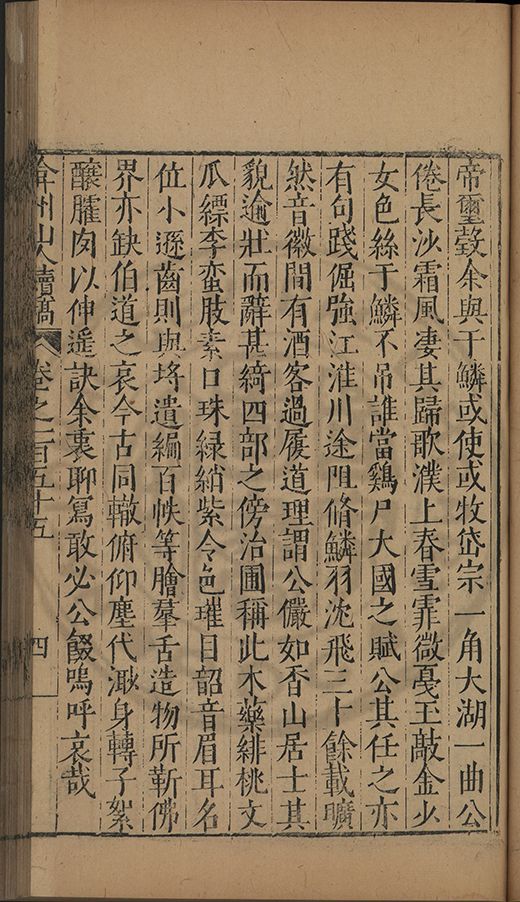 帝璽轂余與于鱗或使或牧岱宗一角大湖一曲公
倦長沙霜風凄其歸歌濮上春雪霏微戞玉敲金少
女色絲于鱗不吊誰當鷄尸大國之賦公其任之亦
有句踐倔強江淮川途阻脩鱗羽沈飛三十餘載曠
然音徽間有酒客過履道理謂公儼如香山居士其
貌逾壯而辭甚綺四部之傍治圃稱此木藥緋桃文
瓜縹李蛮肢素口珠緑綃紫令色璀目韶音眉耳名
位小遜齒則與埓遺編百帙等膾羣舌造物所靳佛
界亦缺伯道之哀今古同轍俯仰塵代泖身轉子絮
釀臛肉以伸遥訣余裏聊寫敢必公餟嗚呼哀哉
弇州山人續稿 卷之一百五十五 四